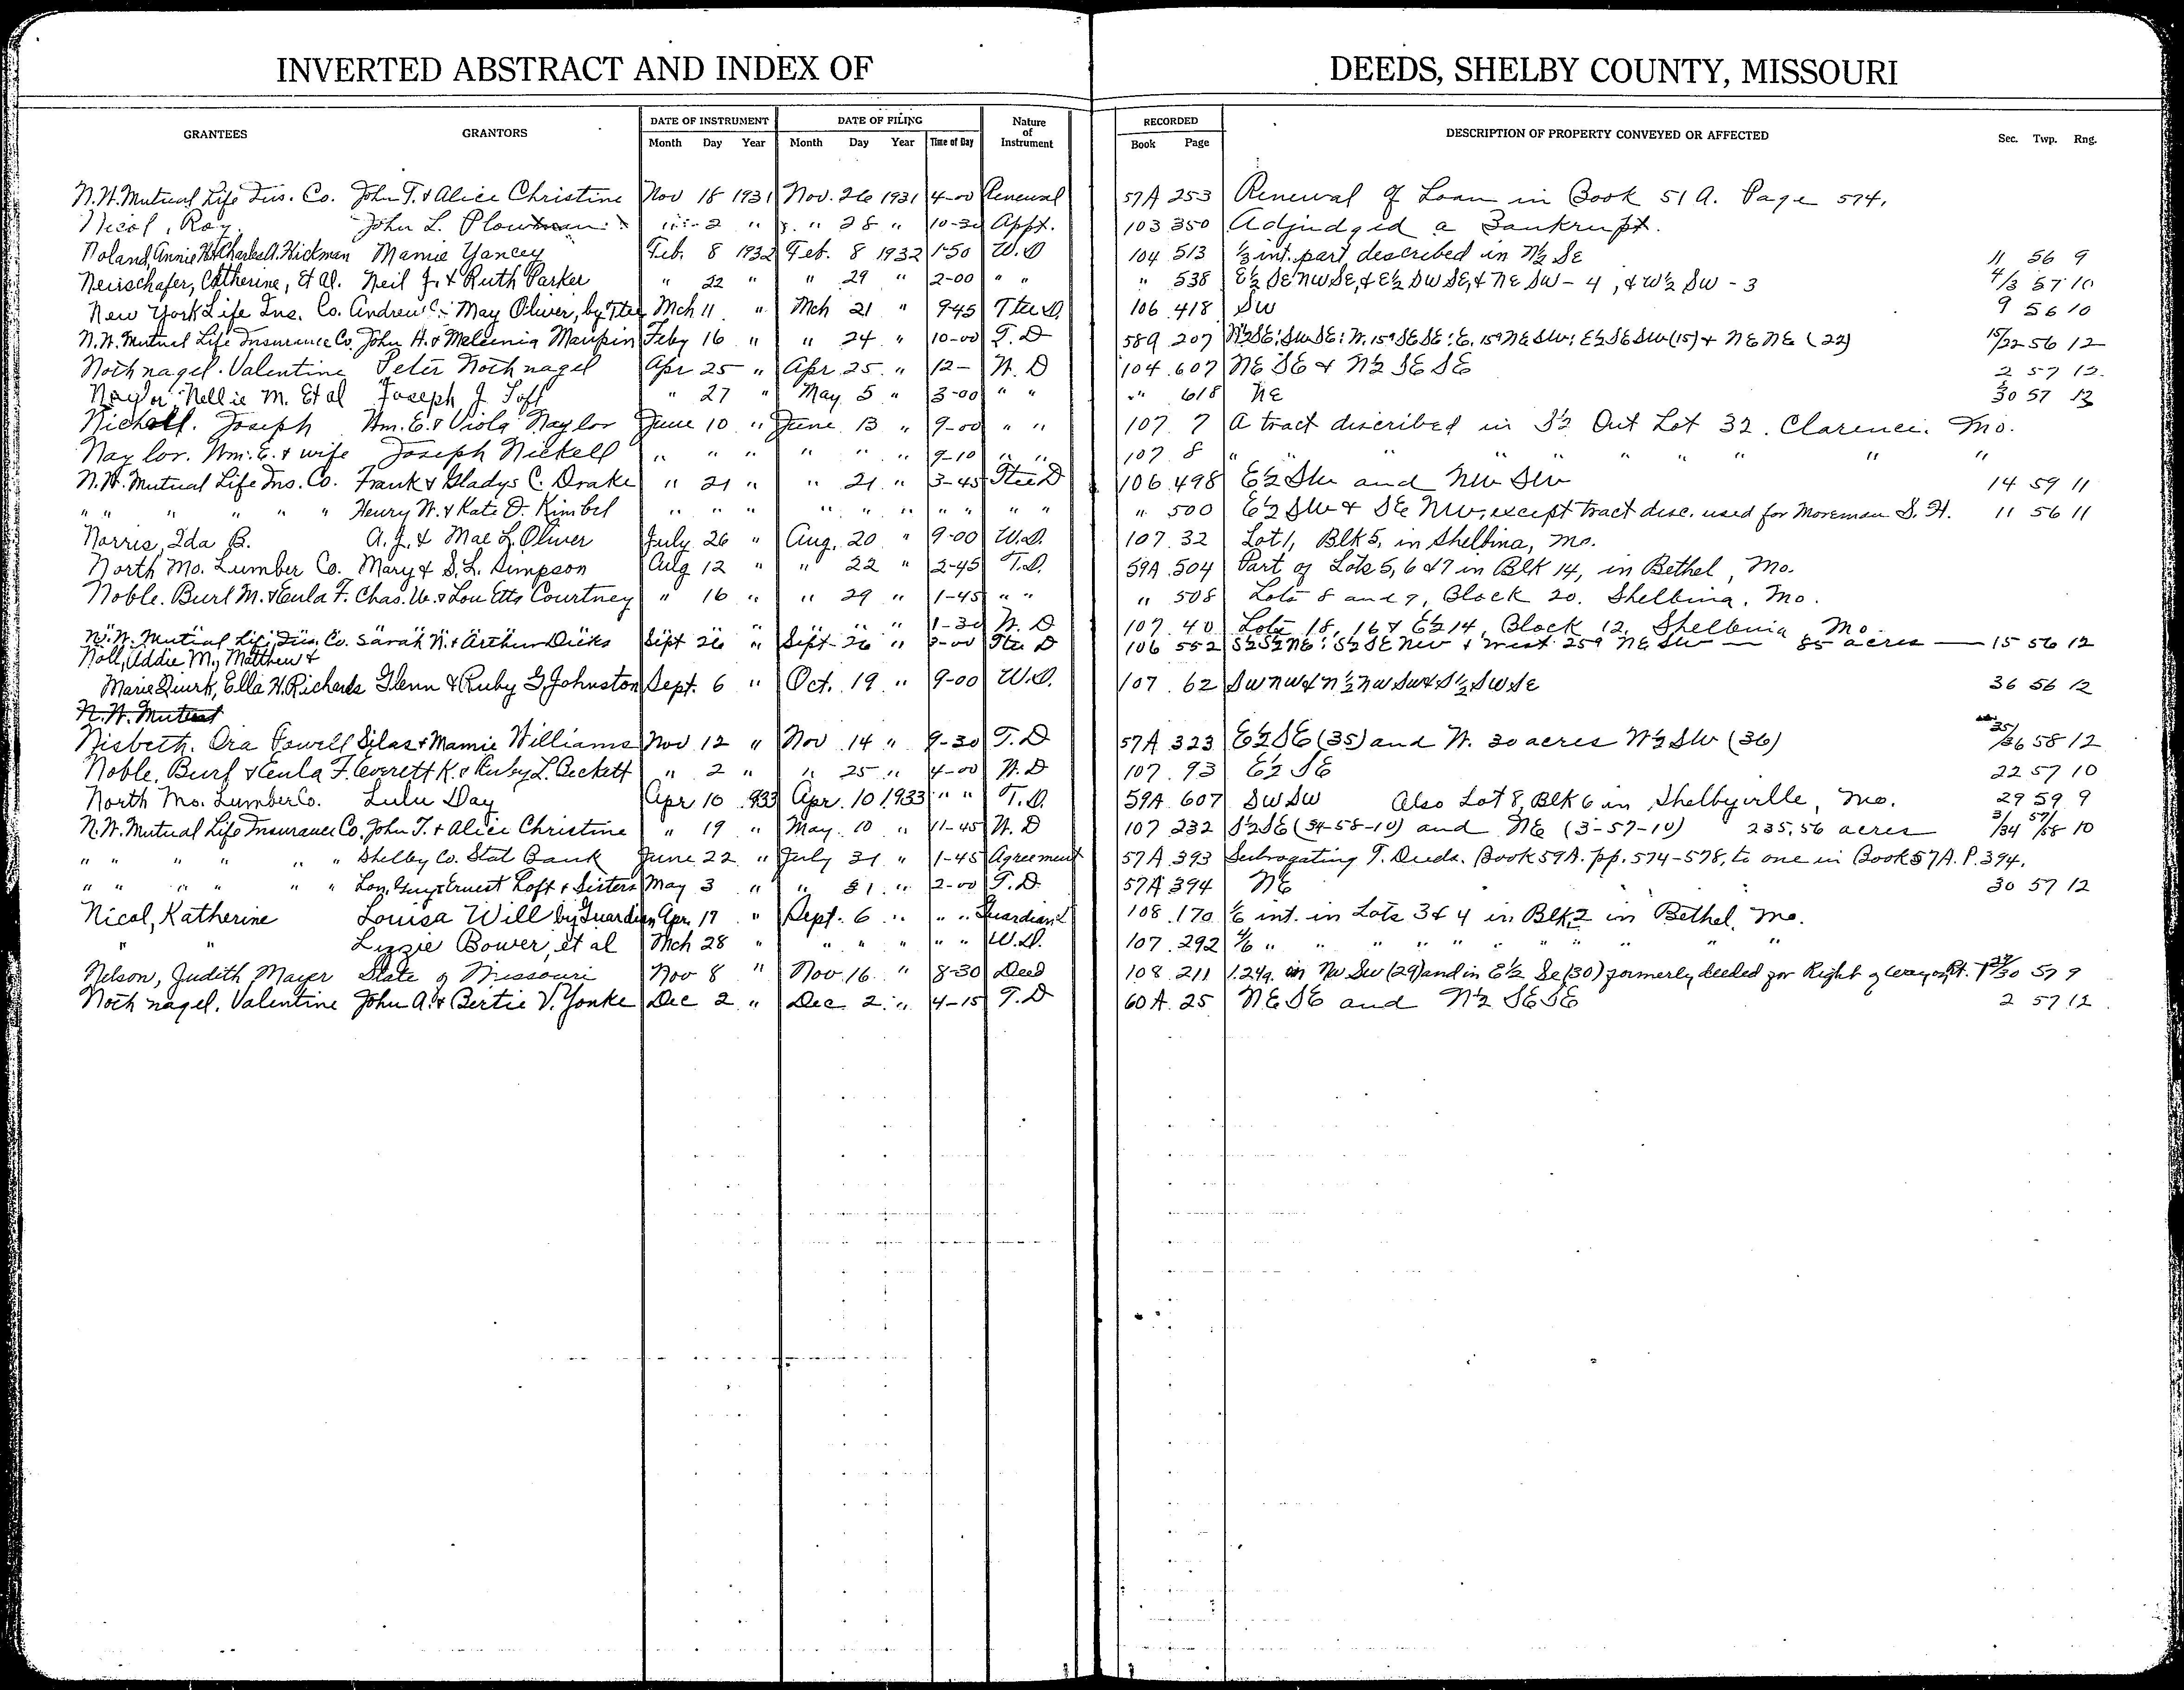 INVERTED ABSTRACT AND INDEX OF DEEDS, SHELBY COUNTY, MISSOURI
GRANTEES GRANTORS DATE OF INSTRUMENT DATE OF FILING Nature of Instrument RECORDED DESCRIPTION OF PROPERTY CONVEYED OR AFFECTED Sec. Twp. Rng.
Month Day Year Month Day Year Time of Day Book Page
N.W. Mutual Life Ins. Co. John T. & Alice Christine Nov 18 1931 Nov. 26 1931 4-00 Renewal 57A 253 Renewal of Loan in Book 51 A. Page 574.
Nicol, Roy. John L. Plowman " 2 " " 28 " 10-30 Appt. 103 350 Adjudged a Bankrupt.
Noland, Annie H & Charles A. Hickman Mamie Yancey Feb. 8 1932 Feb. 8 1932 1-50 W.D 104 513 1/3 int. part described in N½ SE 11 56 9
Neuschafer, Catherine, Et Al. Neil J. & Ruth Parker " 22 " " 29 " 2-00 " " " 538 E½ SE NW SE, & E½ SW SE, & NE SW - 4, & W½ SW - 3 4/3 57 10
New York Life Ins. Co. Andrew C. - May Oliver, by Ttee Mch 11 " Mch 21 " 9-45 Ttee D. 106 418 SW 9 56 10
N.W. Mutual Life Insurance Co. John H. & Melcenia Maupin Feby 16 " " 24 " 10-00 T.D 58A 207 N½SE; SW SE; W. 15a SE SE; E. 15a NE SW; E½ SE SW (15) & NE NE (22) 15/22 56 12
Nothnagel. Valentine Peter Nothnagel Apr 25 " Apr 25 " 12- W.D 104 607 NE SE & N½ SE SE 2 57 12
Naylor, Nellie M. Et al Joseph J. Toft " 27 " May 5 " 3-00 " " " 618 NE 30 57 12
Nickell. Joseph Wm. E. & Viola Naylor June 10 " June 13 " 9-00 " " 107 7 A tract described in S½ Out Lot 32. Clarence. Mo.
Naylor. Wm. E. & wife Joseph Nickell " " " " " " 9-10 " " 107 8 " " " " " " " " "
N.W. Mutual Life Ins. Co. Frank & Gladys C. Drake " 21 " " 21 " 3-45 Ttee D 106 498 E½ SW and NW SW 14 59 11
" " " " " " Henry W. & Kate D. Kimbel " " " " " " " " " " " 500 E½ SW & SE NW, except tract desc. used for Moreman S.H. 11 56 11
Norris, Ida B. A.J. & Mae L. Oliver July 26 " Aug. 20 " 9-00 W.D. 107 32 Lot 1, Blk 5, in Shelbina, Mo.
North Mo. Lumber Co. Mary & S.L. Simpson Aug 12 " " 22 " 2-45 T.D. 59A 504 Part of Lots 5, 6 & 7 in Blk 14, in Bethel, Mo.
Noble. Burl M. & Eula F. Chas. W. & Lou Etta Courtney " 16 " " 29 " 1-45 " " " 508 Lots 8 and 9, Block 20. Shelbina, Mo.
" " " " " " " " 1-30 W.D 107 40 Lots 18, 16 & E½ 14, Block 12, Shelbina Mo.
N.W. Mutual Life Ins. Co. Sarah N. & Arthur Dicks Sept 26 " Sept. 26 " 3-00 Ttee D 106 552 S½ S½ NE; S½ SE NW & West 25a NE SW — 85 acres — 15 56 12
Noll, Addie M., Matthew &
Marie Quirk, Ella H. Richards Glenn & Ruby G. Johnston Sept. 6 " Oct. 19 " 9-00 W.D. 107 62 SW NW & N½ NW SW & S½ SW SE 36 56 12
N.W. Mutual
Nisbeth. Ora Powell Silas & Mamie Williams Nov 12 " Nov 14 " 9-30 T.D 57A 323 E½ SE (35) and W. 30 acres W½ SW (36) 35/36 58 12
Noble. Burl & Eula F. Everett K. & Ruby L. Beckett " 2 " " 25 " 4-00 W.D 107 93 E½ SE 22 57 10
North Mo. Lumber Co. Lulu Day Apr 10 1933 Apr. 10 1933 " " T.D. 59A 607 SW SW Also Lot 8, Blk 6 in Shelbyville, Mo. 29 59 9
N.W. Mutual Life Insurance Co. John T. & Alice Christine " 19 " May 10 " 11-45 W.D 107 232 S½ SE (34-58-10) and NE (3-57-10) 235.56 acres 3/34 57/58 10
" " " " " " Shelby Co. Stat Bank June 22 " July 31 " 1-45 Agreement 57A 393 Subrogating T. Deeds. Book 59A. pp. 574-578, to one in Book 57A. P. 394.
" " " " " " Lon, Guy & Ernest Toft & Sisters May 3 " " 31 " 2-00 T.D. 57A 394 NE 30 57 12
Nicol, Katherine Louisa Will by Guardian Apr. 17 " Sept. 6 " " " Guardian D 108 170 1/6 int. in Lots 3 & 4 in Blk 2 in Bethel, Mo.
" " Lizzie Bower, et al Mch 28 " " " " " " W.D. 107 292 4/6 " " " " " " " " " "
Nelson, Judith Mayer State of Missouri Nov 8 " Nov. 16 " 8-30 Deed 108 211 1.24a. in NW SW (29) and in E½ SE (30) formerly deeded for Right of way on Rt. 29/30 59 9
Nothnagel. Valentine John A. & Bertie V. Yonke Dec 2 " Dec 2 " 4-15 T.D 60A 25 NE SE and N½ SE SE 2 57 12